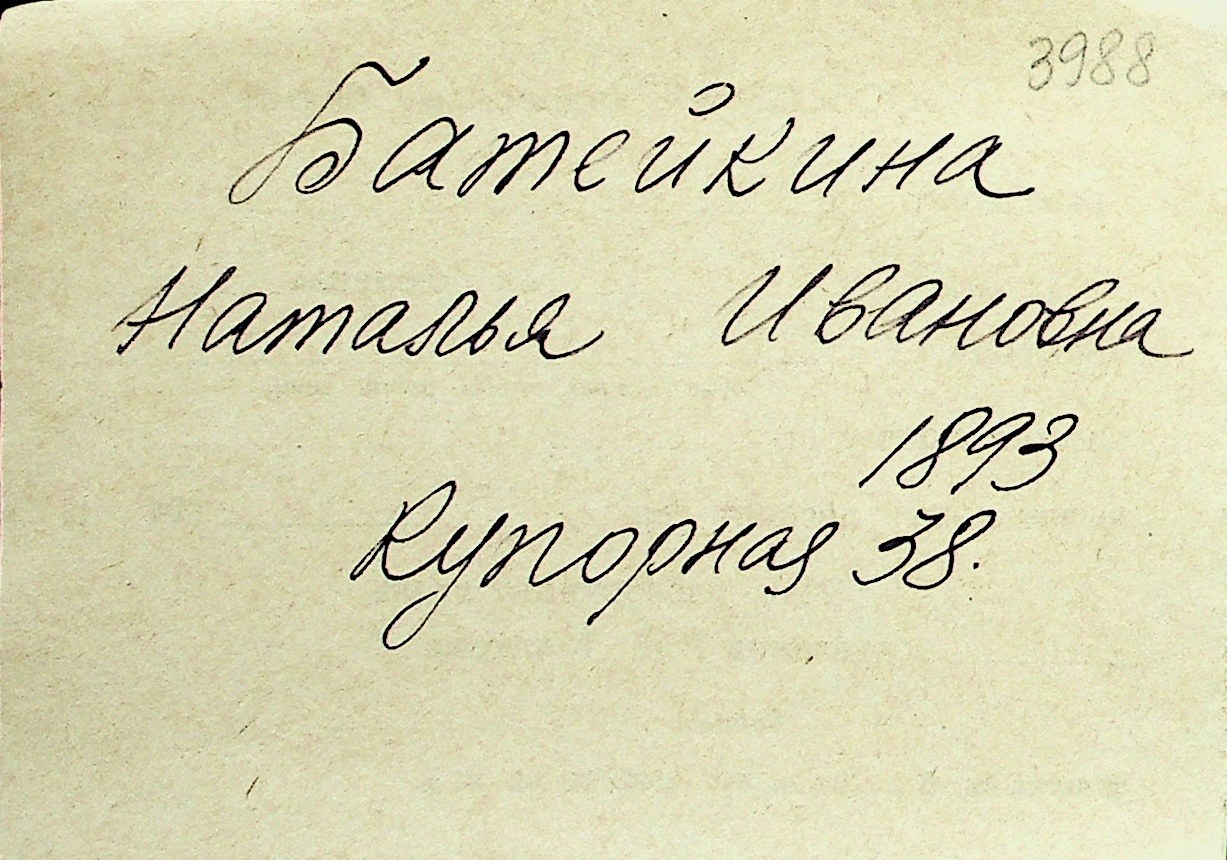 3988
Батейкина
Наталья Ивановна
1893
Купорная 38.